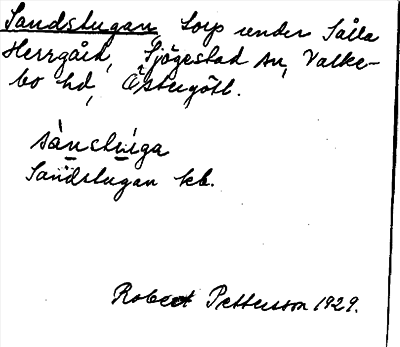 Sandslugan, torp under Sålla
Herrgård, Sjögestad sn, Valke-
bo hd, Östergötl.
sànclùiga
Sandslugan kb.
Robert Pettersson 1929.